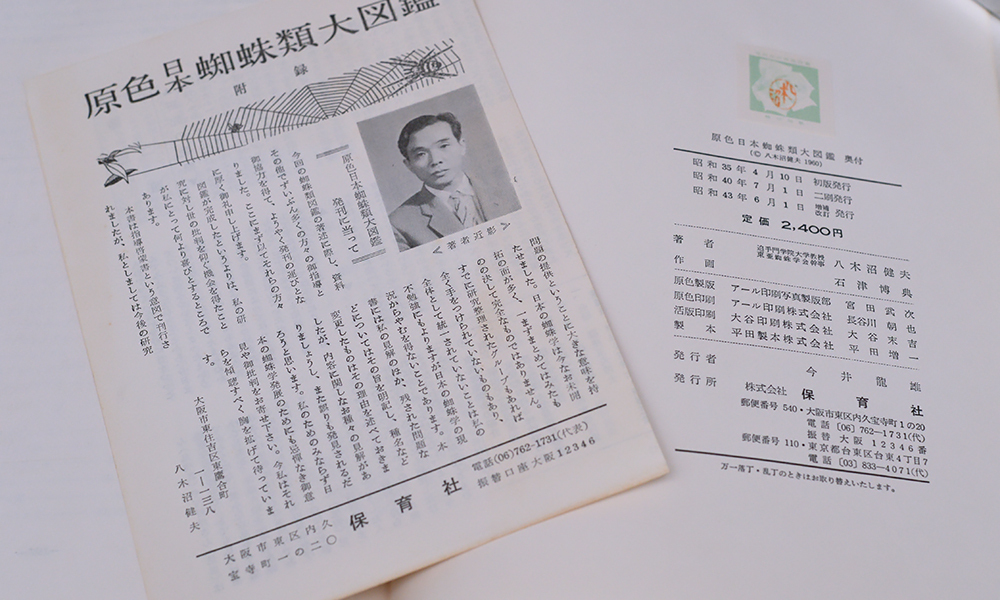 原色日本蜘蛛類大図鑑
附録
原色日本蜘蛛類大図鑑
発刊に当って
今回の蜘蛛類図鑑の著述に際し、資料
その他でずいぶん多くの方々の御指導と
御協力を得て、ようやく発刊の運びとな
りました。ここにまず以てそれらの方々
に厚く御礼申し上げます。
図鑑が完成したというよりは、私の研
究に対し世の批判を仰ぐ機会を得たこと
が私にとって何より喜びとするところで
あります。
本書は指導啓蒙書という意図で刊行さ
れましたが、私としましては今後の研究
＜著者近影＞
問題の提供ということに大きな意味を持
たせました。日本の蜘蛛学は今なお未開
拓の面が多く、一まずまとめてはみたも
のの決して完全なものではありません。
すでに研究整理されたグループもあれば
全く手をつけられていないものもあり、
全体として統一されていないことは私の
不勉強にもよりますが日本の蜘蛛学の現
況からやむを得ないことであります。本
書には私の見解のほか、残された問題な
どについてはその旨を明記し、種名など
変更したものはその理由を述べておきま
したが、内容に関しなお種々の見解があ
りましょうし、また誤りも発見されるだ
ろうと思います。私のためのみならず日
本の蜘蛛学発展のためにも忌憚なき御意
見や御批判をお寄せ下さい。今私はそれ
らを傾聴すべく胸を拡げて待っていま
す。
大阪市東住吉区東鷹合町
一ー一三八
八木沼健夫
大阪市東区内久
宝寺町一の二〇
保育社
電話(06)762-1731(代表)
振替口座大阪12346
原色日本蜘蛛類大図鑑 奥付
(© 八木沼健夫 1960)
昭和35年4月10日 初版発行
昭和40年7月1日 二刷発行
昭和43年6月1日 増補改訂 発行
定価 2,400円
著者 追手門学院大学教授 東亜蜘蛛学会幹事 八木沼健夫
作画 石津博典
原色製版 アール印刷写真製版部 宮田武次
原色印刷 アール印刷株式会社 長谷川朝也
活版印刷 大谷印刷株式会社 大谷末吉
製本 平田製本株式会社 平田増一
発行者 今井龍雄
発行所 株式会社 保育社
郵便番号 540・大阪市東区内久宝寺町1の20
電話 (06) 762―1731(代)
振替 大阪 12346番
郵便番号 110・東京都台東区台東4丁目7
電話 [03] 833―4071(代)
万一落丁・乱丁のときはお取り替えいたします。